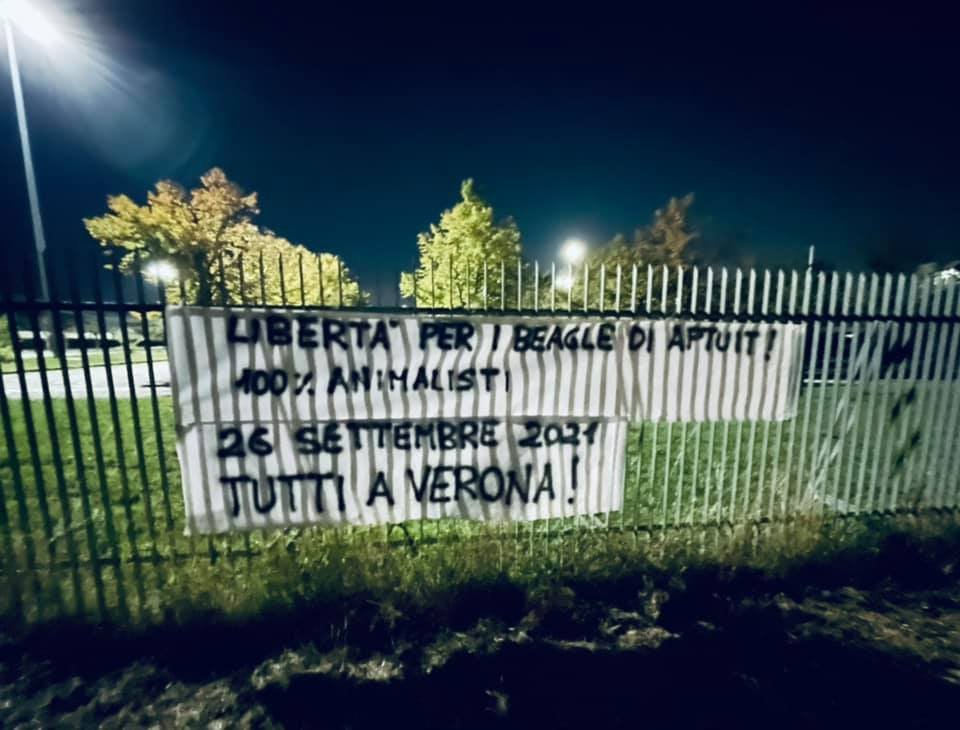 LIBERTA' PER I BEAGLE DI APTUIT!
100% ANIMALISTI
26 SETTEMBRE 2021
TUTTI A VERONA!